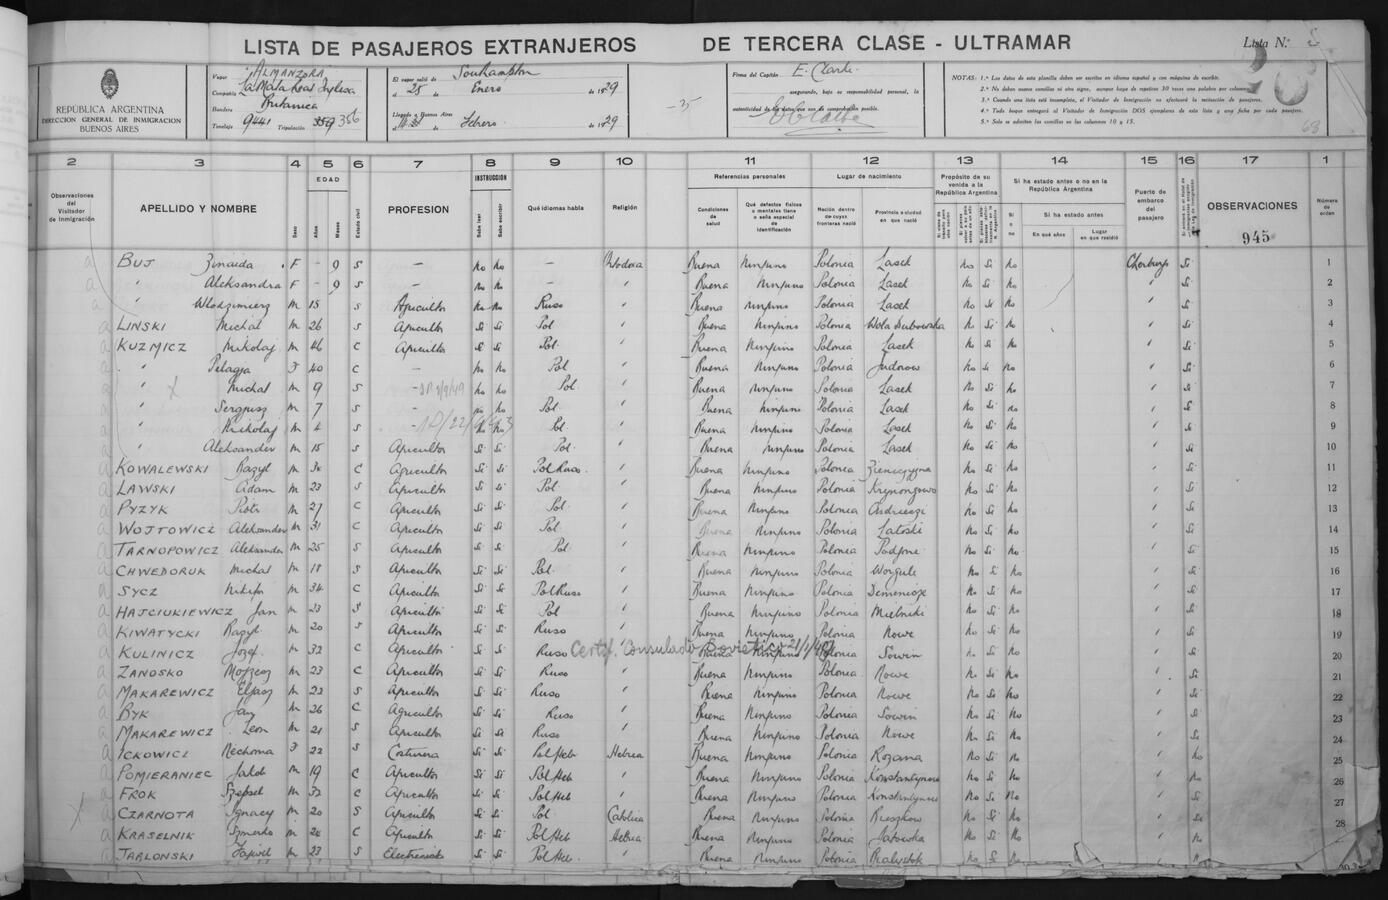 LISTA DE PASAJEROS EXTRANJEROS DE TERCERA CLASE - ULTRAMAR
Lista N.° 5
REPÚBLICA ARGENTINA
DIRECCION GENERAL DE INMIGRACION
BUENOS AIRES
Vapor ALMANZORA
Compañía La Mala Real Inglesa
Bandera Britanica
Tonelaje 9441 Tripulación 356
El vapor salió de Southampton
el 25 de Enero de 1929
Llegado a Buenos Aires
Febrero de 1929
Firma del Capitán, E. Clarke
asegurando, bajo su responsabilidad personal, la
autenticidad de los datos que son de comprobación posible.
NOTAS: 1.ª Los datos de esta planilla deben ser escritos en idioma español y con máquina de escribir.
2.ª No deben usarse comillas ni otro signo, aunque haya de repetirse 30 veces una palabra por columna.
3.ª Cuando una lista esté incompleta, el Visitador de Inmigración no efectuará la recitación de pasajeros.
4.ª Todo buque entregará al Visitador de Inmigración DOS ejemplares de esta lista y una ficha por cada pasajero.
5.ª Solo se admiten las comillas en las columnas 10 y 15.
68
2 3 4 5 6 7 8 9 10 11 12 13 14 15 16 17 1
Observaciones del Visitador de Inmigración
APELLIDO Y NOMBRE
Sexo
EDAD
Años
Meses
Estado civil
PROFESION
INSTRUCCION
Sabe leer
Sabe escribir
Qué idiomas habla
Religión
Referencias personales
Condiciones de salud
Qué defectos físicos o mentales tiene o seña especial de identificación
Lugar de nacimiento
Nación dentro de cuyas fronteras nació
Provincia o ciudad en que nació
Propósito de su venida a la República Argentina
Si ha estado antes o no en la República Argentina
Si o no
Si ha estado antes
En qué años
Lugar en que residió
Puerto de embarco del pasajero
OBSERVACIONES
945
Número de orden
BUJ Zinaida F - 9 S - No No - Ortodoxa Buena Ninguno Polonia Lasek No Si No Cherburgo Si 1
" Aleksandra F - 9 S - No No - " Buena Ninguno Polonia Lasek No Si No " Si 2
" Wlodzimierz M 15 S Agricultor No No Ruso " Buena Ninguno Polonia Lasek No Si No " Si 3
LINSKI Michal M 26 S Agricultor Si Si Pol " Buena Ninguno Polonia Wola Dubowska No Si No " Si 4
KUZMICZ Mikolaj M 46 C Agricultor Si Si Pol " Buena Ninguno Polonia Lasek No Si No " Si 5
" Pelagja F 40 C - No No Pol " Buena Ninguno Polonia No Si No " Si 6
" Michal M 9 S - No No Pol " Buena Ninguno Polonia Lasek No Si No " Si 7
" Sergiusz M 7 S - No No Pol " Buena Ninguno Polonia Lasek No Si No " Si 8
" Mikolaj M 4 S - No No Pol " Buena Ninguno Polonia Lasek No Si No " Si 9
" Aleksander M 15 S Agricultor Si Si Pol " Buena Ninguno Polonia Lasek No Si No " Si 10
KOWALEWSKI Bazyl M C Agricultor Si Si Pol Ruso " Buena Ninguno Polonia No Si No " Si 11
LAWSKI Adam M 23 S Agricultor Si Si Pol " Buena Ninguno Polonia No Si No " Si 12
PYZYK Piotr M 27 C Agricultor Si Si Pol " Buena Ninguno Polonia No Si No " Si 13
WOJTOWICZ Aleksander M 31 C Agricultor Si Si Pol " Buena Ninguno Polonia No Si No " Si 14
TARNOPOWICZ Aleksander M 25 S Agricultor Si Si Pol " Buena Ninguno Polonia No Si No " Si 15
CHWEDORUK Michal M 18 S Agricultor Si Si Pol " Buena Ninguno Polonia Worgule No Si No " Si 16
SYCZ Nikifor M 34 C Agricultor Si Si Pol Ruso " Buena Ninguno Polonia No Si No " Si 17
HAJCIUKIEWICZ Jan M 23 S Agricultor Si Si Pol " Buena Ninguno Polonia Mielniki No Si No " Si 18
KIWATYCKI Bazyl M 20 S Agricultor Si Si Ruso " Buena Ninguno Polonia Nowe No Si No " Si 19
KULINICZ Jozef M 32 C Agricultor Si Si Ruso Certif. Consulado Sovietico Buena Ninguno Polonia Sowin No Si No " Si 20
ZANOSKO Mojzesz M 23 C Agricultor Si Si Ruso " Buena Ninguno Polonia Nowe No Si No " Si 21
MAKAREWICZ Eljasz M 22 S Agricultor Si Si Ruso " Buena Ninguno Polonia Nowe No Si No " Si 22
BYK Jan M 26 C Agricultor Si Si Ruso " Buena Ninguno Polonia Sowin No Si No " Si 23
MAKAREWICZ Leon M 21 S Agricultor Si Si Ruso " Buena Ninguno Polonia Nowe No Si No " Si 24
ICKOWICZ Nechoma F 22 S Costurera Si Si Pol Heb Hebrea Buena Ninguno Polonia Rozana No Si No " No 25
POMIERANIEC Jakob M 19 C Agricultor Si Si Pol Heb " Buena Ninguno Polonia Konstantynowo No Si No " No 26
FROK Szepsel M 32 C Agricultor Si Si Pol Heb " Buena Ninguno Polonia Konstantynowo No Si No " No 27
CZARNOTA Ignacy M 20 S Agricultor Si Si Pol Catolica Buena Ninguno Polonia No Si No " Si 28
KRASELNIK Szmerko M C Agricultor Si Si Pol Heb Hebrea Buena Ninguno Polonia No Si No " No
JABLONSKI Fajwel M 23 S Electricista Si Si Pol Heb " Buena Ninguno Polonia Bialystok No Si No " No